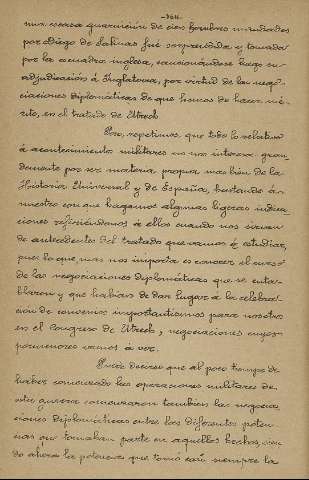 muy escasa guarnición de cien hombres mandados
por Diego de Salinas fué sorprendida y tomada
por la escuadra inglesa, sancionándose luego su
adjudicación á Inglaterra, por virtud de las nego-
ciaciones diplomáticas de que hemos de hacer mé-
rito, en el tratado de Utrech.
Pero, repetimos, que todo lo relativo
á acontecimientos militares no nos interesa gran-
demente por ser materia propia mas bien de la
Historia Universal y de España, bastando á
nuestro con que hagamos algunas ligeras indica-
ciones refiriéndonos á ellos cuando nos sirvan
de antecedentes del tratado que vamos á estudiar,
pues lo que mas nos importa es conocer el curso
de las negociaciones diplomáticas que se enta-
blaron y que habían de dar lugar á la celebra-
cion de convenios importantísimos para nosotros
en el Congreso de Utrech, negociaciones cuyos
pormenores vamos á ver.
Puede decirse que al poco tiempo de
haber comenzado las operaciones militares de
esta guerra comenzaron tambien las negocia-
ciones diplomáticas entre las diferentes poten-
cias que tomaban parte en aquellos hechos, sien-
do ahora la potencia que tomó casi siempre la